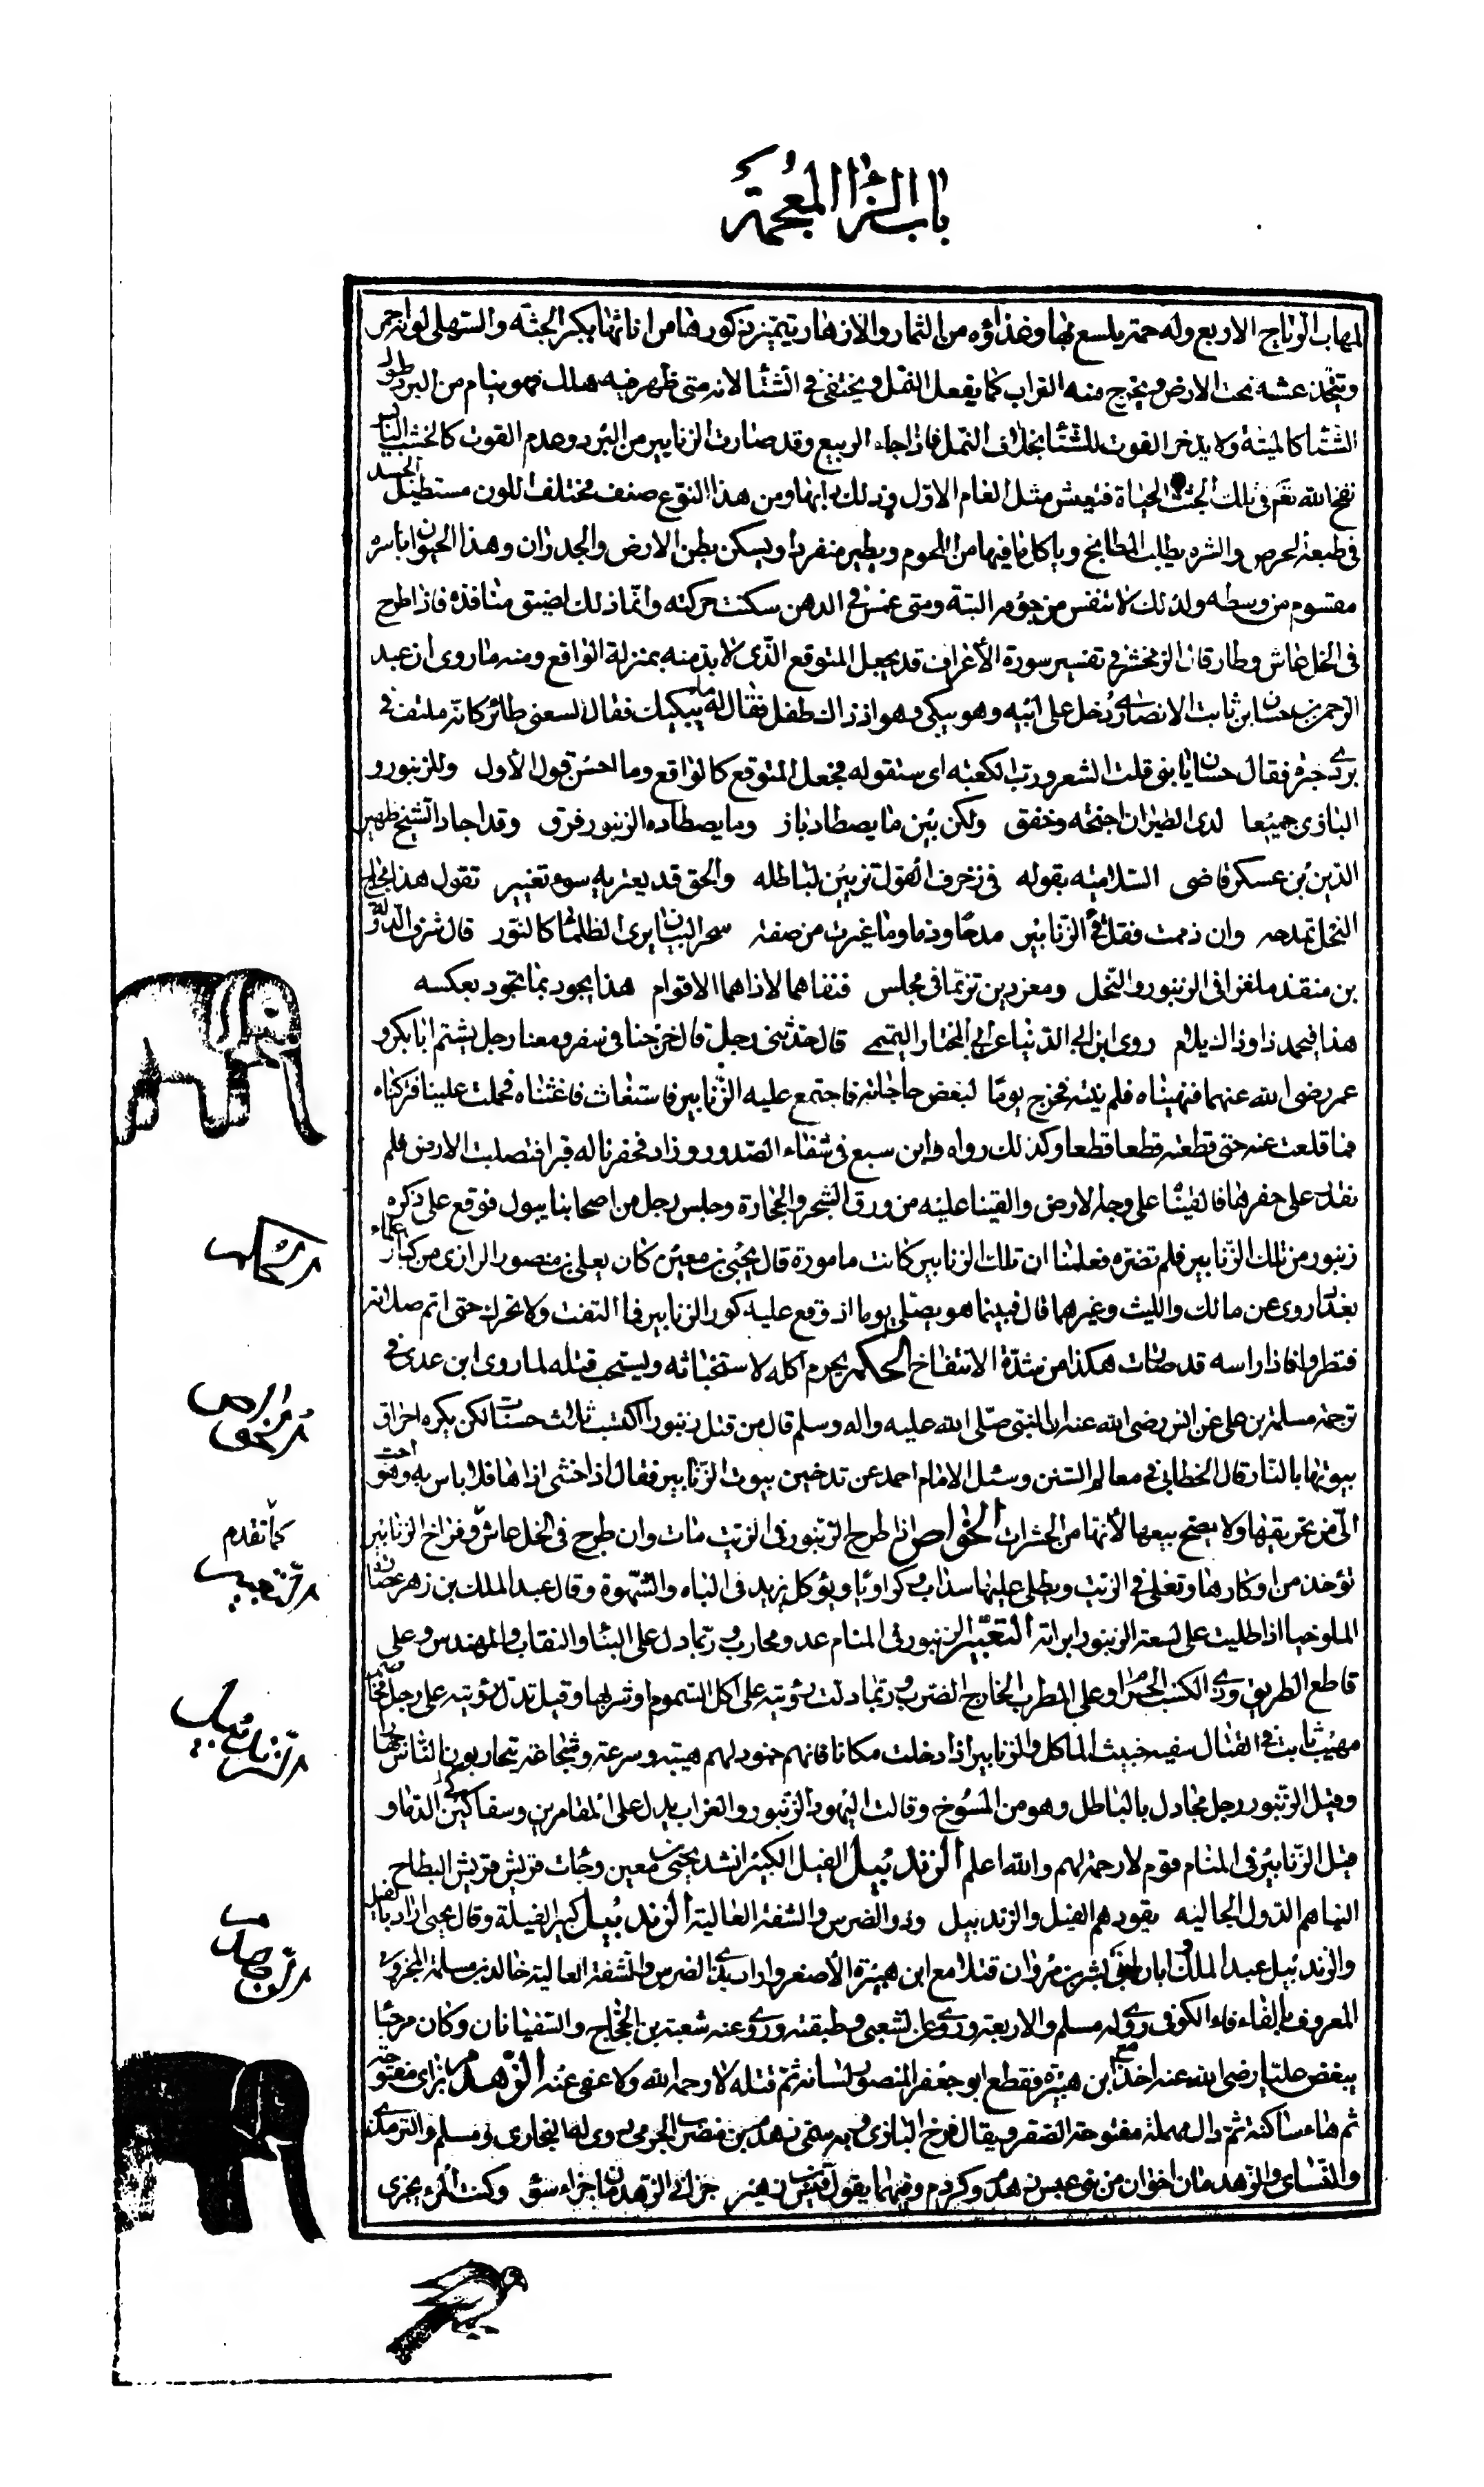 باب الزاء المعجمة
لمهاب الرياح الاربع وله حمة يلسع بها وغذاؤه من الثمار والازهار ويتميز ذكورها من اناثها بكبر الجثة والسهلى
ويتخذ عشه تحت الارض ويخرج منه التراب كما يفعل النمل ويختفى فى الشتاء لانه متى ظهر فيه هلك فهو ينام من البرد طول
الشتاء كالميتة ولا يدخر القوت للشتاء بخلاف النمل فاذا جاء الربيع وقد صارت الزنابير من البرد وعدم القوت كالخشب اليابس
نفخ الله تعم فى تلك الجثث الحياة فتعيش مثل العام الاول وذلك دابها ومن هذا النوع صنف مختلف اللون مستطيل الجسد
فى طبعه الحرص والشره يطلب المطابخ وياكل ما فيها من اللحوم ويطير منفردا ويسكن بطن الارض والجدران وهذا الحيوان باسره
مقسوم من وسطه ولذلك لا يتنفس من جوفه البتة ومتى غمس فى الدهن سكنت حركته وانما ذلك لضيق منافذه فاذا طرح
فى الخل عاش وطار قال الزمخشرى فى تفسير سورة الأعراف قد يجعل المتوقع الذى لا بد منه بمنزلة الواقع ومنه ما روى ان عبد
الرحمن بن حسان ابن ثابت الانصارى دخل على ابيه وهو يبكى وهو اذ ذاك طفل فقال له ما يبكيك فقال لسعنى طائر كانه ملتف فى
بردى حبرة فقال حسان يا بنى قلت الشعر ورب الكعبة اى ستقوله فجعل المتوقع كالواقع وما احسن قول الأول وللزنبور و
البازى جميعا لدى الطيران اجنحة وخفق ولكن بين ما يصطاد باز وما يصطاده الزنبور فرق وقد اجاد الشيخ ظهير
الدين بن عسكر قاضى السلامية بقوله فى زخرف القول تزيين لباطله والحق قد يعتريه سوء تغيير تقول هذا مجاج
النحل تمدحه وان ذممت فقل قئ الزنابير مدحا وذما وما غيرت من صفة سحر البيان يرى الظلماء كالنور قال شرف الدولة
بن منقذ ملغزا فى الزنبور والنحل ومغردين ترنما فى مجلس فنفاهما لاذاهما الاقوام هذا يجود بما يجود بعكسه
هذا فيحمد ذا وذاك يلام روى ابن ابى الدنيا عن ابى المختار التيمى قال حدثنى رجل قال خرجنا فى سفر ومعنا رجل يشتم ابا بكر و
عمر رضى الله عنهما فنهيناه فلم ينته فخرج يوما لبعض حاجاته فاجتمع عليه الزنابير فاستغاث فاغثناه فحملت علينا فتركناه
فما قلعت عنه حتى قطعته قطعا قطعا وكذلك رواه ابن سبع فى شفاء الصدور وزاد فحفرنا له قبرا فتصلبت الارض فلم
نقدر على حفرها فالقيناه على وجه الارض والقينا عليه من ورق الشجر والحجارة وجلس رجل من اصحابنا يبول فوقع على ذكره
زنبور من تلك الزنابير فلم تضره فعلمنا ان تلك الزنابير كانت مامورة قال يحيى بن معين كان يعلى بن منصور الرازى من كبار علماء
بغداد روى عن مالك والليث وغيرهما قال فبينما هو يصلى يوما اذ وقع عليه كور الزنابير فما التفت ولا تحرك حتى اتم صلاته
فنظروا فاذا راسه قد صارت هكذا من شدة الانتفاخ الحكم يحرم اكله لاستخباثه ويستحب قتله لما روى ابن عدى فى
ترجمة مسلمة بن على عن انس رضى الله عنه ان النبى صلى الله عليه واله وسلم قال من قتل زنبورا اكتسب ثلاث حسنات لكن يكره احراق
بيوتها بالنار قال الخطابى فى معالم السنن وسئل الامام احمد عن تدخين بيوت الزنابير فقال اذا خشى اذاها فلا باس به وهو احب
الى من تحريقها ولا يصح بيعها لأنها من الحشرات الخواص اذا طرح الزنبور فى الزيت مات وان طرح فى الخل عاش وفراخ الزنابير
تؤخذ من اوكارها وتغلى فى الزيت ويطلى عليها سذاب وكراويا ويؤكل يزيد فى الباه والشهوة وقال عبد الملك بن زهر عصارة
الملوخيا اذا طليت على لسعة الزنبور ابراته التعبير الزنبور فى المنام عدو محارب وربما دل على البناء والنقاب والمهندس وعلى
قاطع الطريق وذى الكسب الحرام وعلى المطرب الخارج الضرب وربما دلت رؤيته على اكل السموم او شربها وقيل تدل رؤيته على رجل مخاصم
مهيب ثابت فى القتال سفيه خبيث الماكل والزنابير اذا دخلت مكانا فانهم جنود لهم هيبة وسرعة وشجاعة يحاربون الناس جهارا
وقيل الزنبور رجل مجادل بالباطل وهو من المسوخ وقالت اليهود الزنبور والغراب يدل على المقامرين وسفاكين الدماء و
قيل الزنابير فى المنام قوم لا رحمة لهم والله اعلم الزندبيل الفيل الكبير انشد يحيى بن معين وجات قريش قريش البطاح
الينا هم الدول الجالية يقودهم الفيل والزندبيل وذو الضرس والشفة العالية الزندبيل كبير الفيلة وقال يحيى اراد بالفيل
والزندبيل عبد الملك وابان ابنى بشر بن مروان قتلا مع ابن هبيرة الأصغر واراد بذى الضرس والشفة العالية خالد بن مسلمة المخزومى
المعروف بالفاء فاء الكوفى روى له مسلم والاربعة وروى عن الشعبى وطبقته وروى عنه شعبة بن الحجاج والسفيانان وكان مرجيا
يبغض عليا رضى الله عنه اخذ مع ابن هبيرة فقطع ابو جعفر المنصور لسانه ثم قتله لا رحمه الله ولا عفى عنه الزهدم بزاى مفتوحة
ثم هاء ساكنة ثم دال مهملة مفتوحة الصقر ويقال فرخ البازى وبه سمى زهدم بن مضرب الجرمى روى له البخارى ومسلم والترمذى
والنساى والزهدمان اخوان من بنى عبس زهدم وكردم وفيهما يقول قيس بن زهير جزانى الزهدمان جزاء سوء وكنت المرء يجزى
الحكم
الخواص
كما تقدم
التعبير
الزندبيل
الزهدم